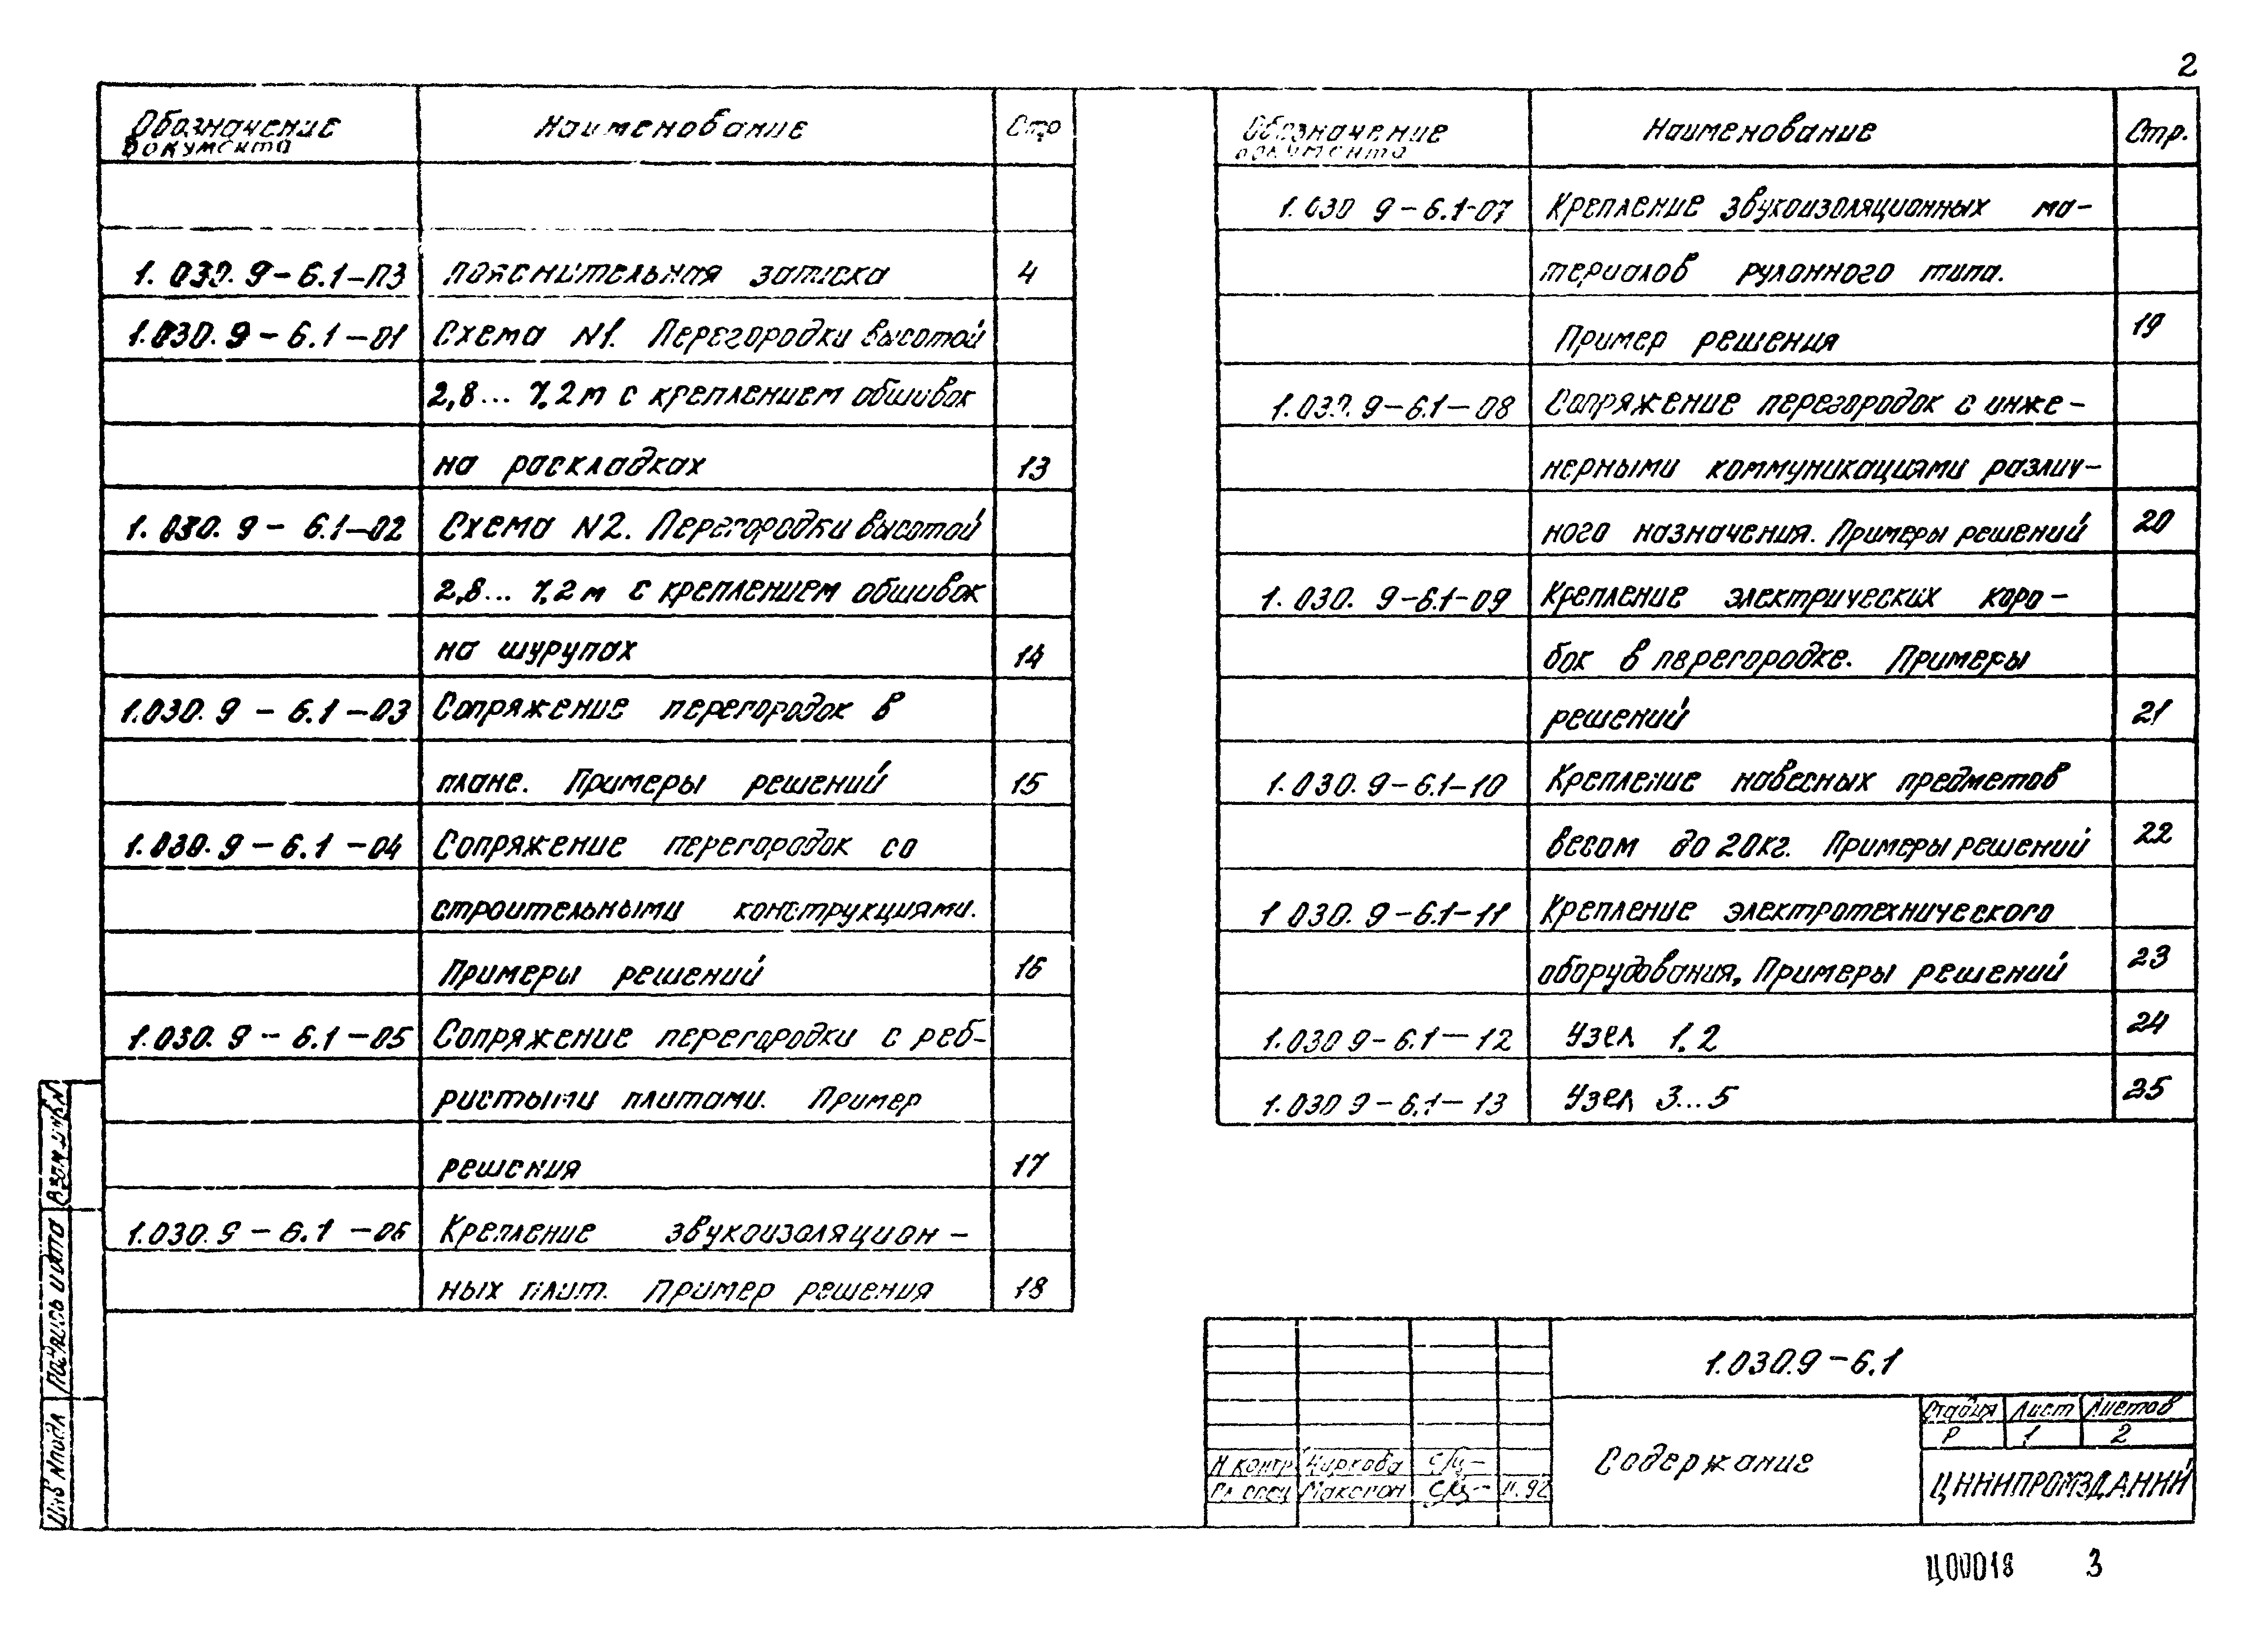 2
Обозначение документа Наименование Стр
1.030.9-6.1-ПЗ Пояснительная записка 4
1.030.9-6.1-01 Схема N1. Перегородки высотой
2,8... 7,2м с креплением обшивок
на раскладках 13
1.030.9-6.1-02 Схема N2. Перегородки высотой
2,8... 7,2м с креплением обшивок
на шурупах 14
1.030.9-6.1-03 Сопряжение перегородок в
плане. Примеры решений 15
1.030.9-6.1-04 Сопряжение перегородок со
строительными конструкциями.
Примеры решений 16
1.030.9-6.1-05 Сопряжение перегородки с реб-
ристыми плитами. Пример
решения 17
1.030.9-6.1-06 Крепление звукоизоляцион-
ных плит. Пример решения 18
Обозначение документа Наименование Стр.
1.030 9-6.1-07 Крепление звукоизоляционных ма-
териалов рулонного типа.
Пример решения 19
1.030.9-6.1-08 Сопряжение перегородок с инже-
нерными коммуникациями различ-
ного назначения. Примеры решений 20
1.030.9-6.1-09 Крепление электрических коро-
бок в перегородке. Примеры
решений 21
1.030.9-6.1-10 Крепление навесных предметов
весом до 20кг. Примеры решений 22
1 030.9-6.1-11 Крепление электротехнического
оборудования, Примеры решений 23
1.030 9-6.1-12 Узел 1.2 24
1.030 9-6.1-13 Узел 3...5 25
Взам инв N
Подпись и дата
Инв N подл
1.030.9-6.1
Содержание
Стадия Лист Листов
Р 1 2
ЦНИИПРОМЗДАНИЙ
Н контр Циркова
Гл спец Макогон 11.92
Ц00018 3